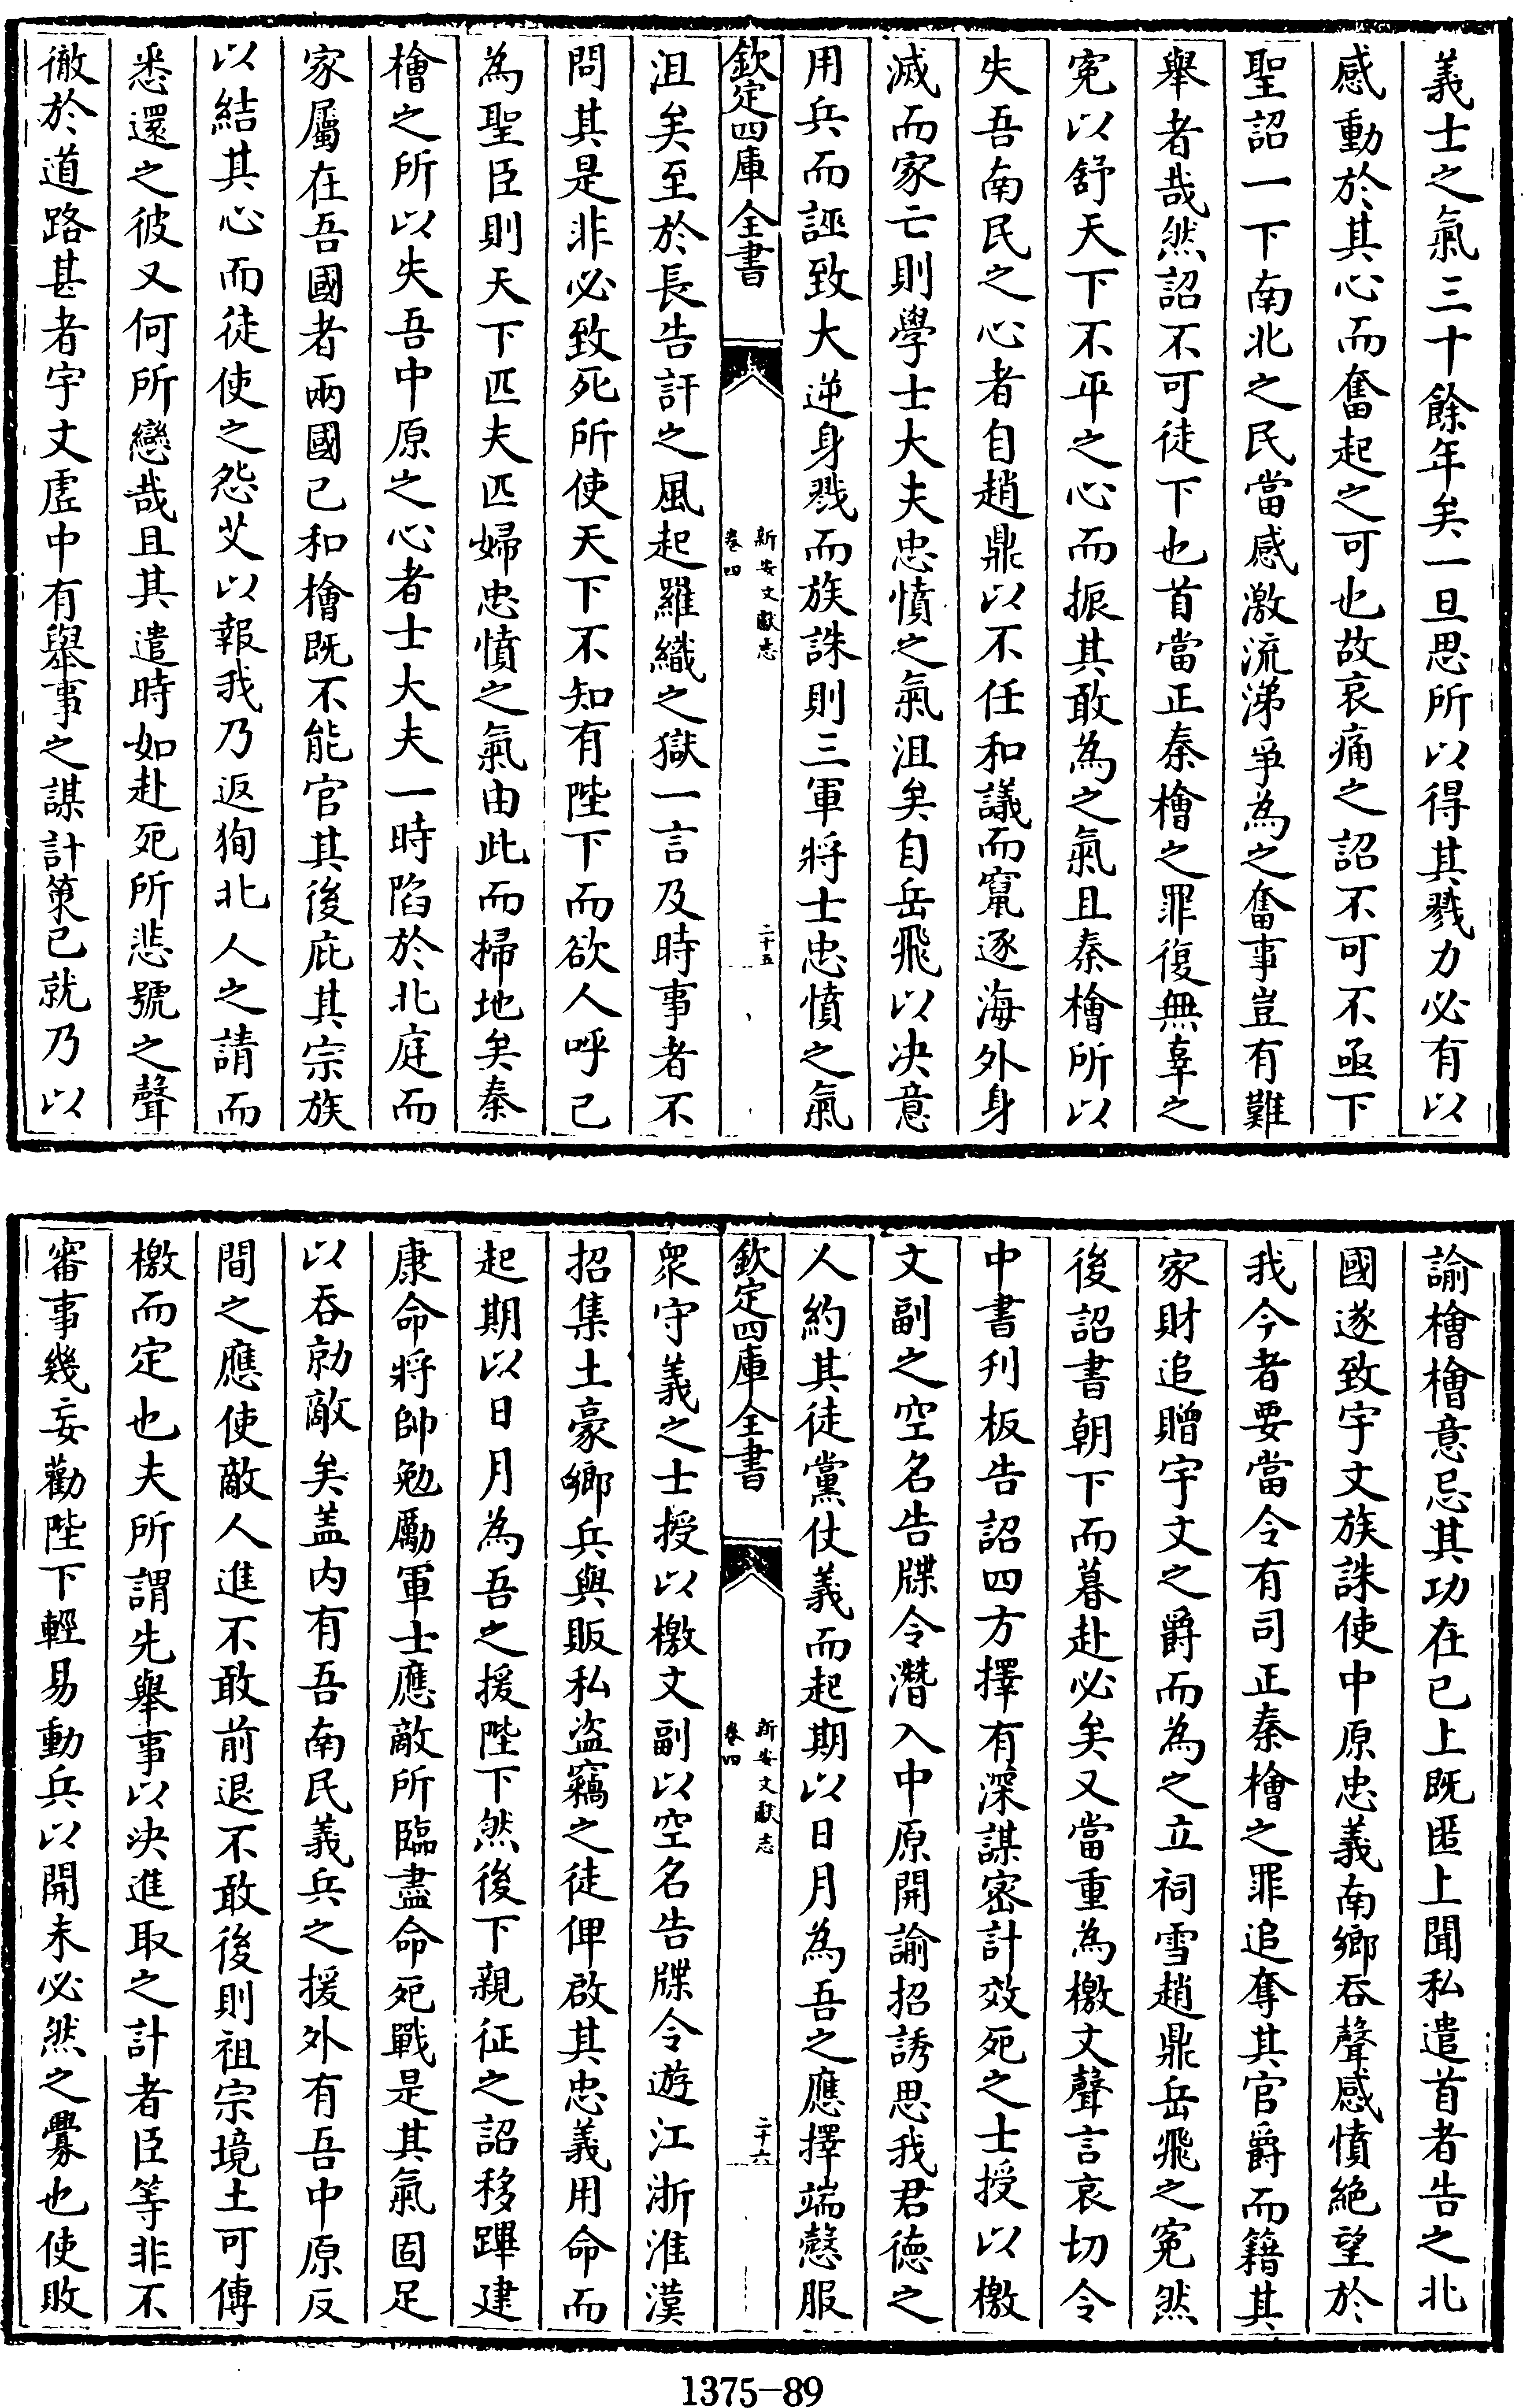 義士之氣三十餘年矣一旦思所以得其戮力必有以
感動於其心而奮起之可也故哀痛之詔不可不亟下
聖詔一下南北之民當感激流涕爭為之奮事豈有難
舉者哉然詔不可徒下也首當正秦檜之罪復無辜之
寃以舒天下不平之心而振其敢為之氣且秦檜所以
失吾南民之心者自趙鼎以不任和議而竄逐海外身
滅而家亡則學士大夫忠憤之氣沮矣自岳飛以决意
用兵而誣致大逆身戮而族誅則三軍將士忠憤之氣
欽定四庫全書
新安文獻志
卷四
二十五
沮矣至於長告訐之風起羅織之獄一言及時事者不
問其是非必致死所使天下不知有陛下而欲人呼己
為聖臣則天下匹夫匹婦忠憤之氣由此而掃地矣秦
檜之所以失吾中原之心者士大夫一時陷於北庭而
家屬在吾國者兩國已和檜既不能官其後庇其宗族
以結其心而徒使之怨艾以報我乃返狥北人之請而
悉還之彼又何所戀哉且其遣時如赴死所悲號之聲
徹於道路甚者宇文虛中有舉事之謀計策已就乃以
諭檜檜意忌其功在已上既匿上聞私遣首者告之北
國遂致宇文族誅使中原忠義南鄉吞聲感憤絕望於
我今者要當令有司正秦檜之罪追奪其官爵而籍其
家財追贈宇文之爵而為之立祠雪趙鼎岳飛之寃然
後詔書朝下而暮赴必矣又當重為檄文聲言哀切令
中書刋板告詔四方擇有深謀密計效死之士授以檄
文副之空名告牒令潛入中原開諭招誘思我君德之
人約其徒黨仗義而起期以日月為吾之應擇端慤服
欽定四庫全書
新安文獻志
卷四
二十六
衆守義之士授以檄文副以空名告牒令遊江浙淮漢
招集土豪鄉兵與販私盜竊之徒俾啟其忠義用命而
起期以日月為吾之援陛下然後下親征之詔移蹕建
康命將帥勉勵軍士應敵所臨盡命死戰是其氣固足
以吞勍敵矣盖内有吾南民義兵之援外有吾中原反
間之應使敵人進不敢前退不敢後則祖宗境土可傳
檄而定也夫所謂先舉事以决進取之計者臣等非不
審事幾妄勸陛下輕易動兵以開未必然之釁也使敗
1375-89